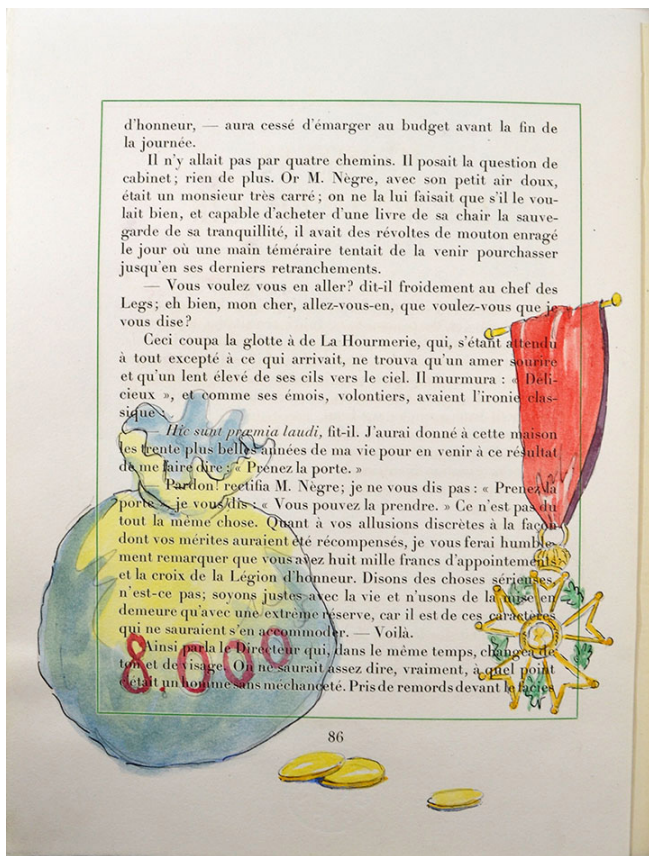 d'honneur, — aura cessé d'émarger au budget avant la fin de
la journée.
Il n'y allait pas par quatre chemins. Il posait la question de
cabinet ; rien de plus. Or M. Nègre, avec son petit air doux,
était un monsieur très carré ; on ne la lui faisait que s'il le vou-
lait bien, et capable d'acheter d'une livre de sa chair la sauve-
garde de sa tranquillité, il avait des révoltes de mouton enragé
le jour où une main téméraire tentait de la venir pourchasser
jusqu'en ses derniers retranchements.
— Vous voulez vous en aller ? dit-il froidement au chef des
Legs ; eh bien, mon cher, allez-vous-en, que voulez-vous que je
vous dise ?
Ceci coupa la glotte à de La Hourmerie, qui, s'étant attendu
à tout excepté à ce qui arrivait, ne trouva qu'un amer sourire
et qu'un lent élevé de ses cils vers le ciel. Il murmura : « Déli-
cieux », et comme ses émois, volontiers, avaient l'ironie clas-
sique :
Hic sunt præmia laudi, fit-il. J'aurai donné à cette maison
les trente plus belles années de ma vie pour en venir à ce résultat
de me faire dire : « Prenez la porte. »
— Pardon ! rectifia M. Nègre ; je ne vous dis pas : « Prenez la
porte », je vous dis : « Vous pouvez la prendre. » Ce n'est pas du
tout la même chose. Quant à vos allusions discrètes à la façon
dont vos mérites auraient été récompensés, je vous ferai humble-
ment remarquer que vous avez huit mille francs d'appointements
et la croix de la Légion d'honneur. Disons des choses sérieuses,
n'est-ce pas ; soyons justes avec la vie et n'usons de la mise en
demeure qu'avec une extrême réserve, car il est de ces caractères
qui ne sauraient s'en accommoder. — Voilà.
Ainsi parla le Directeur qui, dans le même temps, changea de
ton et de visage. On ne saurait assez dire, vraiment, à quel point
c'était un homme sans méchanceté. Pris de remords devant le facies
8.000
86